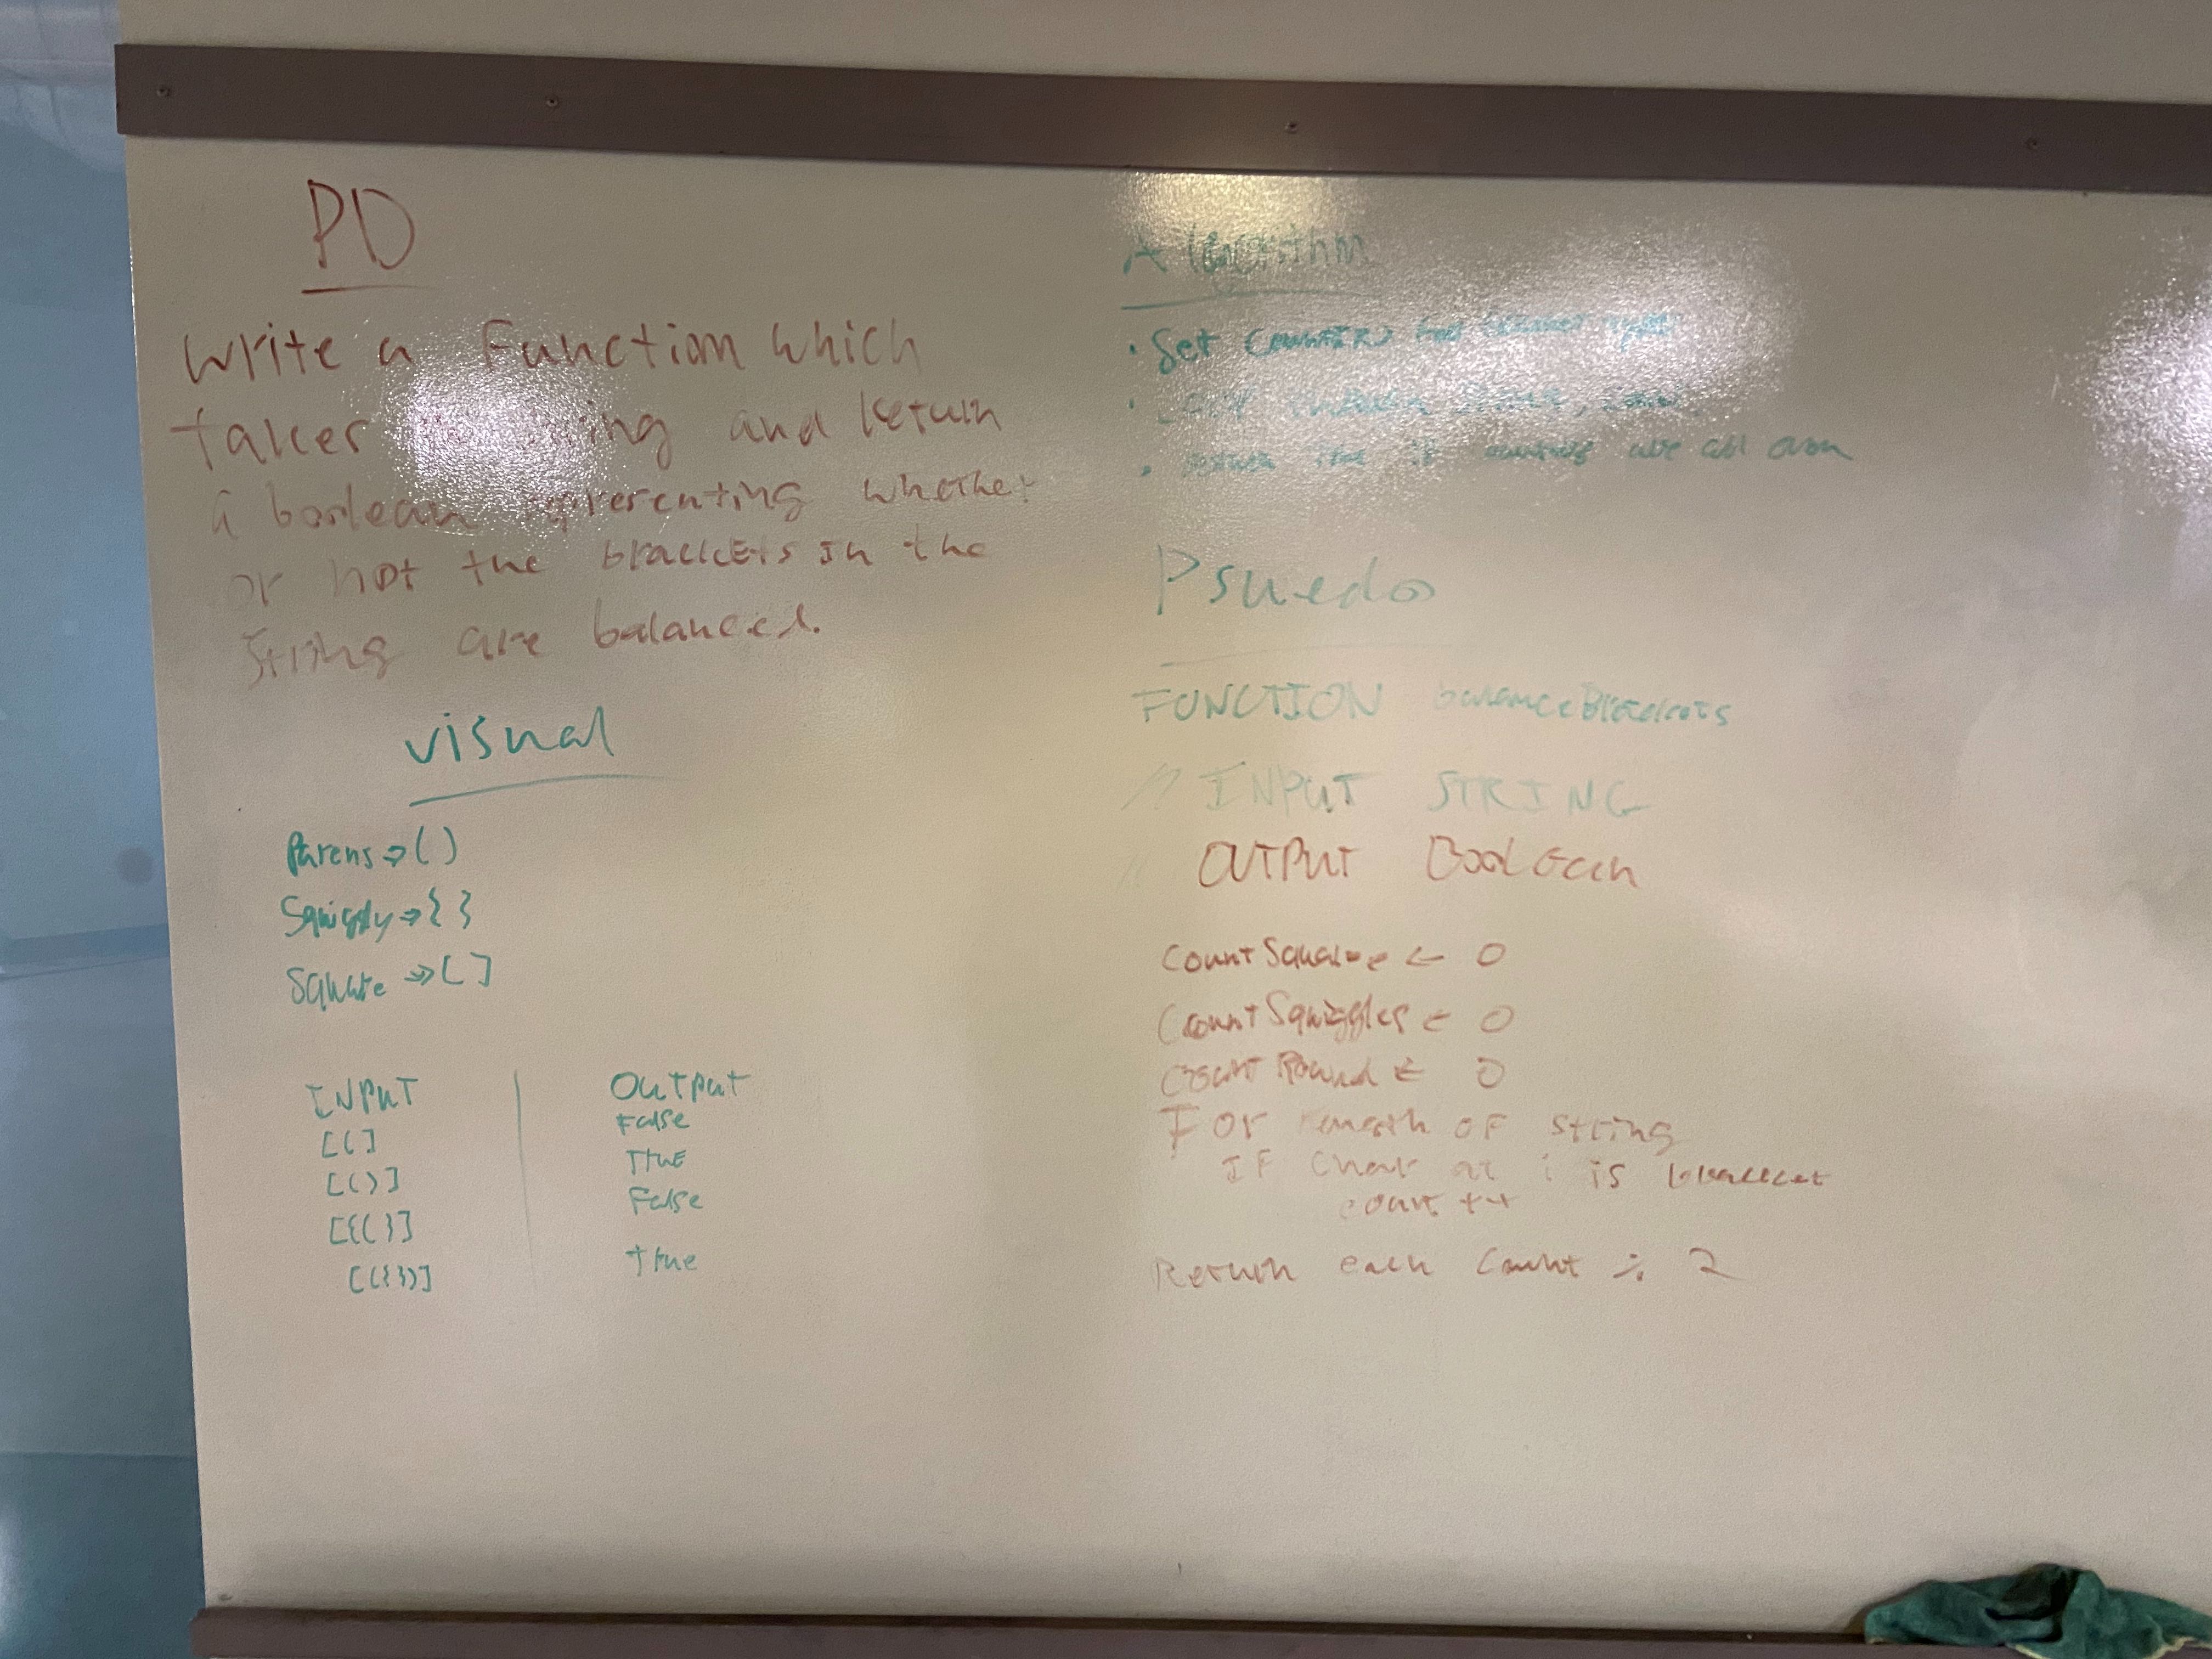 PD
Write a Function which
takes and Return
a boolean representing whether
or not the brackets in the
String are balanced.
visual
Parens → ( )
Squiggly → { }
Square → [ ]
INPUT | OUTPUT
[(] False
[()] True
[{(}] False
[({})] true
Algorithm
• Set
•
• return true if are all even
Psuedo
FUNCTION balanceBrackets
// INPUT STRING
// OUTPUT Boolean
CountSquare ← 0
CountSquiggles ← 0
Count Round ← 0
For length of string
IF Char at i is bracket
count ++
Return each Count % 2